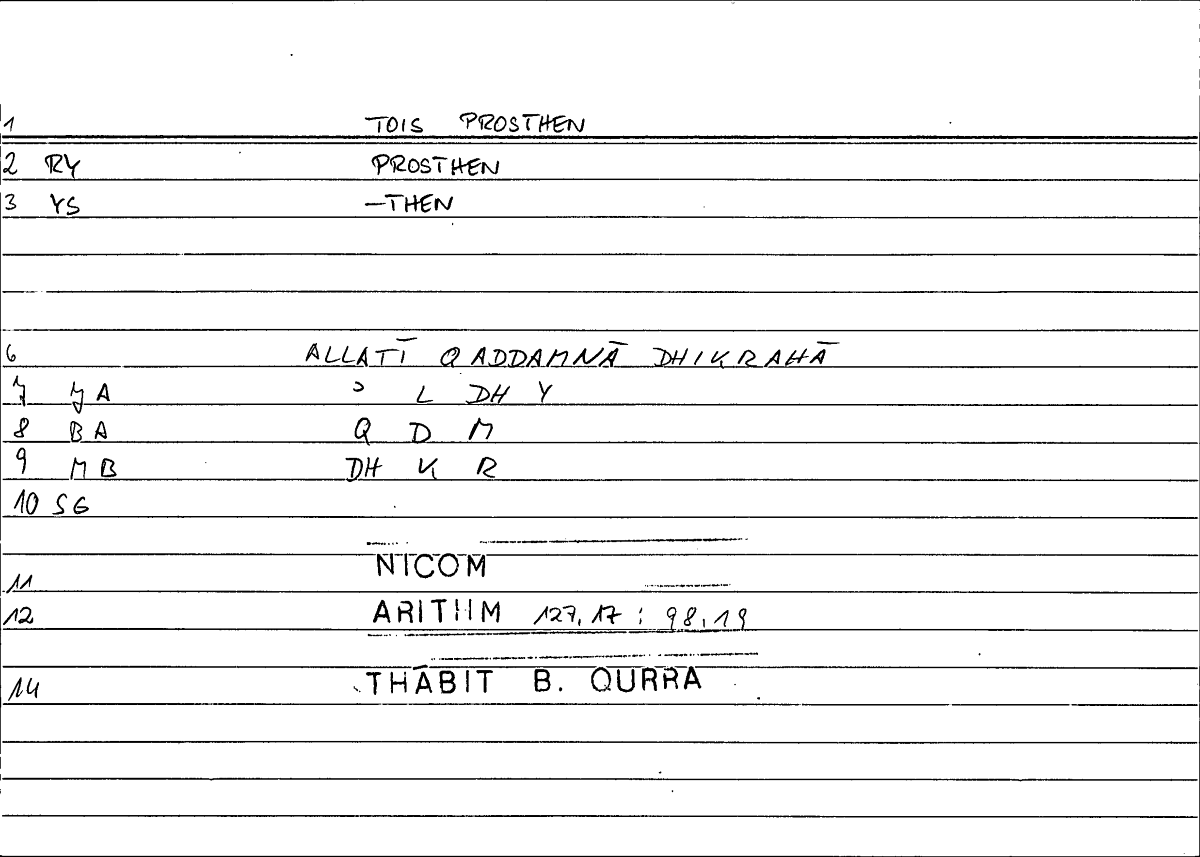 1 TOIS PROSTHEN
2 RY PROSTHEN
3 YS —THEN
6 ALLATĪ QADDAMNĀ DHIKRAHĀ
7 YA ʾ L DH Y
8 BA Q D M
9 MB DH K R
10 SG
11 NICOM
12 ARITHM 127,17 ; 98,19
14 THĀBIT B. QURRA